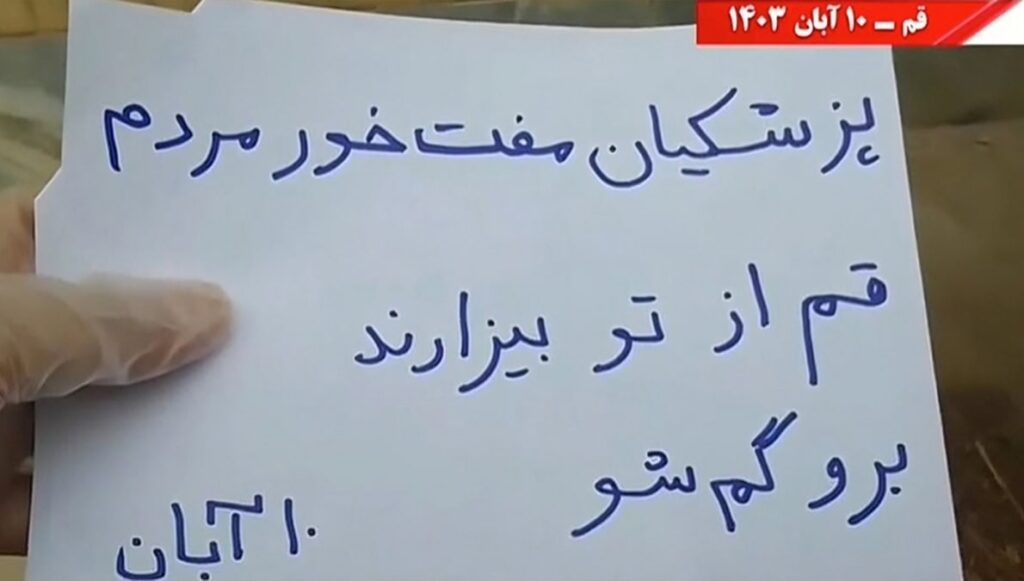 قم – ۱۰ آبان ۱۴۰۳
پزشکیان مفت خور مردم
قم از تو بیزارند
برو گم شو
۱۰ آبان